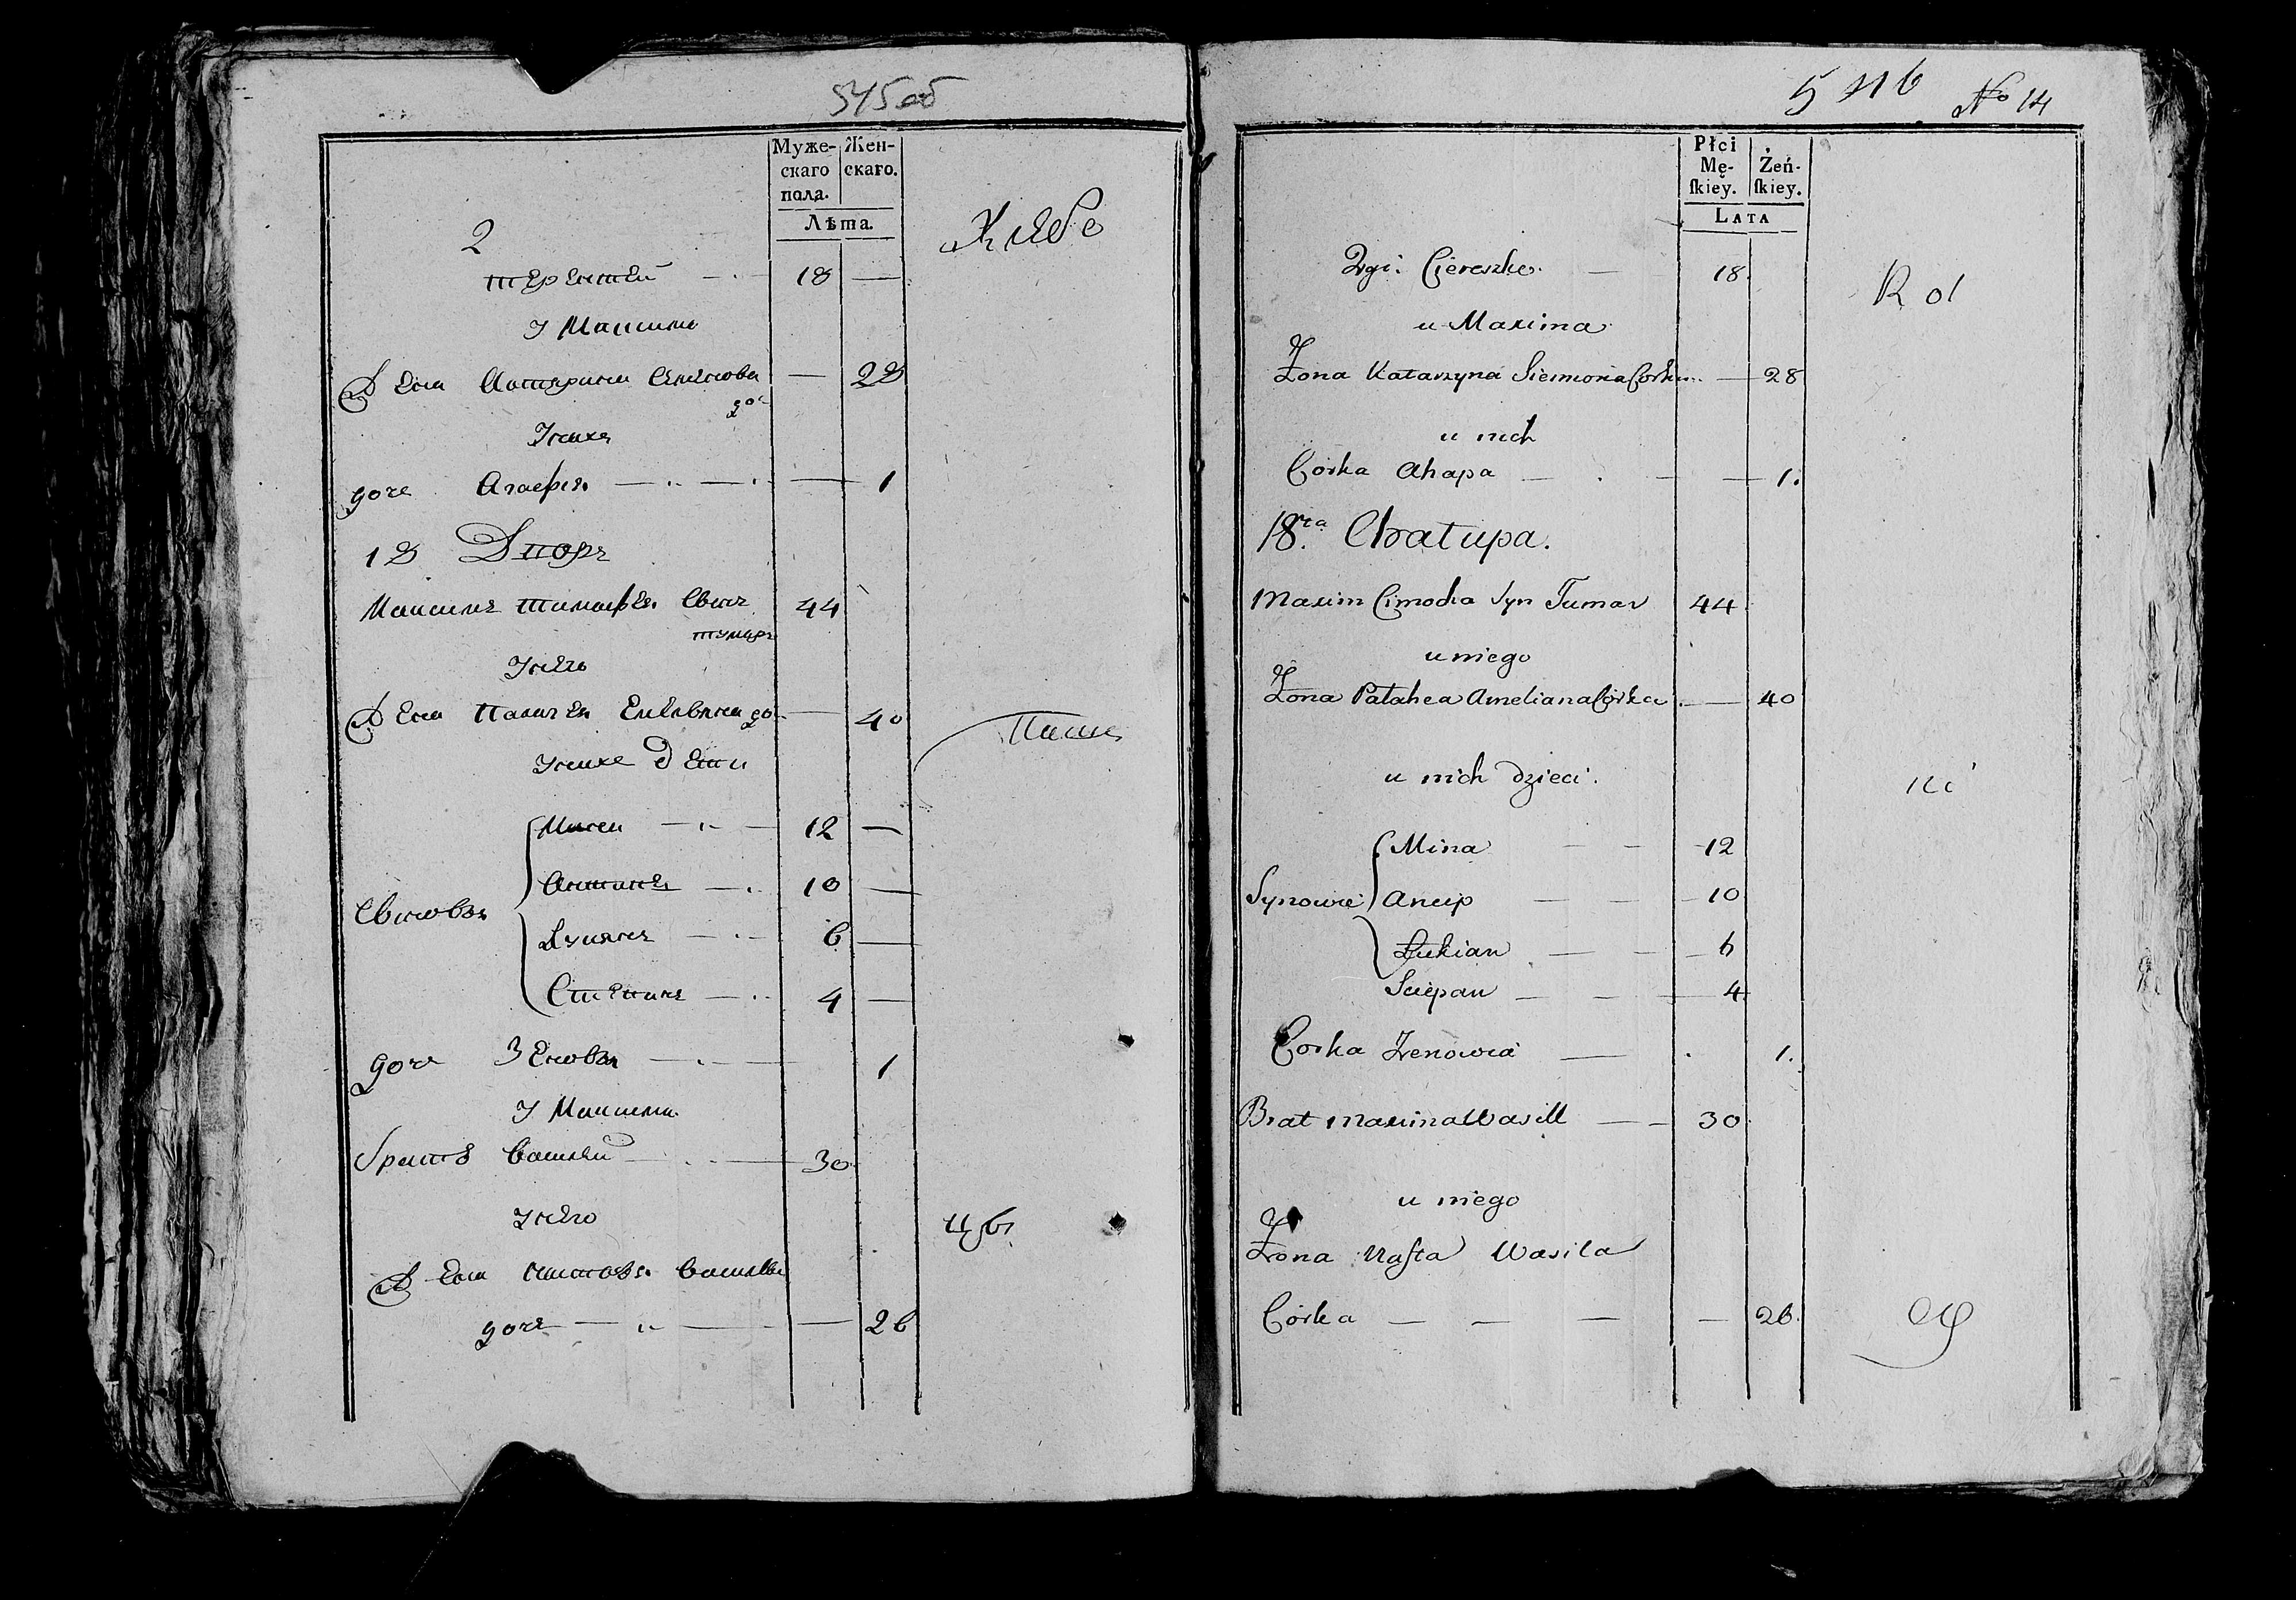 545 об
Муже-
скаго
пола.
Жен-
скаго.
Лѣта.
2
Терентей 18
У Максима
Жена Катерина Семенова до: 28
У них
доче Агафия 1
18 Двор
Максим Тимофея Сынъ Тумаръ 44
У него
Жена Палагея Емельянова до: 40
У них Дети
Сыновья
Мина 12
Антипъ 10
Лукянъ 6
Степанъ 4
доч Зеновья 1
У Максима
братъ Василей 30
У него
Жена Настасья Васильева
доче 26
546
No 14
Płci
Mę-
ſkiey.
Żeń-
ſkiey.
LATA
2gi. Ciereszko 18
u Maxima
Zona Katarzyna Siemiona Corka 28
u nich
Corka Ahapa 1.
18.ta Chatupa.
Maxim Cimocha Syn Tumar 44
u niego
Zona Palahea Ameliana Córka 40
u nich dzieci.
Synowie
Mina 12
Ancip 10
Łukian 6
Sciepan 4
Corka Zenowia 1.
Brat Maxima Wasill 30
u niego
Zona Naſta Wasila
Córka 26.